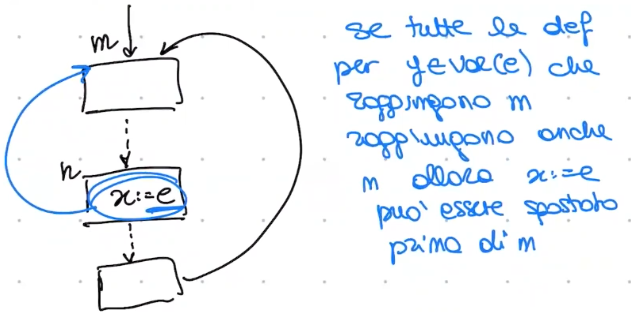 m
n
x:=e
se tutte le def
per y∈var(e) che
raggiungono m
raggiungono anche
n allora x:=e
puo' essere spostato
prima di m